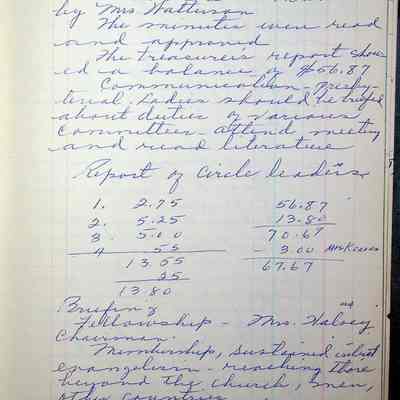 by Mrs Watterson
The minutes were read
and approved
The treasurers report show
ed a balance of $56.87
Communication - Presby-
terial. Ladies should be briefed
about duties of various
committees - attend meeting
and read literature
Report of Circle leaders
1. 2.75 56.87
2. 5.25 13.80
3. 5.00 70.67
4 55 - 3.00 Mrs
13.55 67.67
25
13.80
Briefing
Fellowship - Mrs. Halsey
Chairman.
Membership, sustained
evangelism - reaching those
beyond the church, men,
other countries